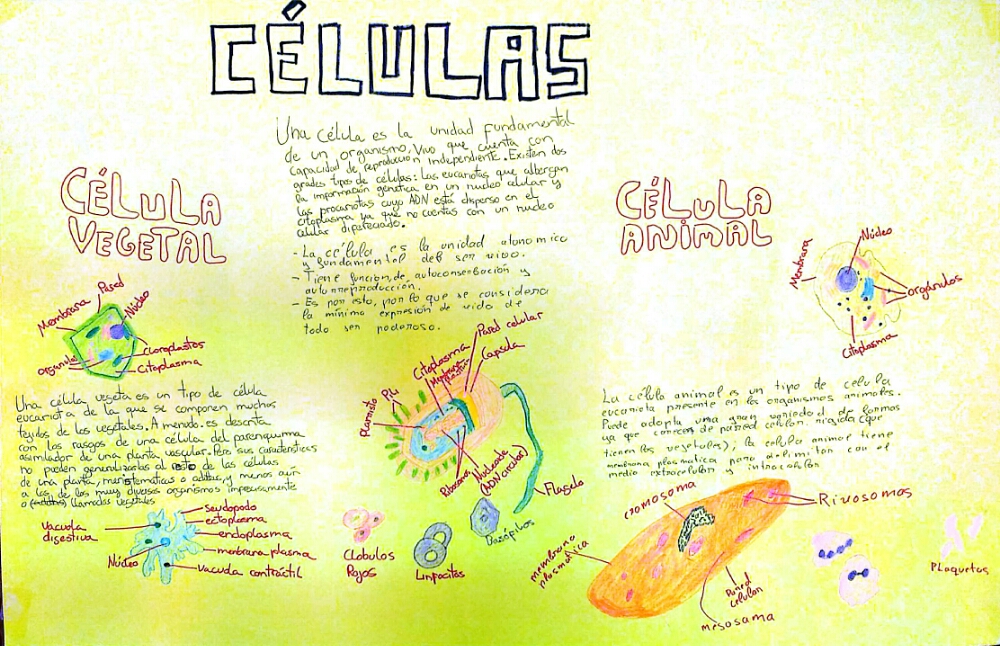 CÉLULAS
Una célula es la unidad fundamental
de un organismo, Vivo que cuenta con
capacidad de reproducción independiente. Existen dos
grades tipos de células: Las eucariotas que albergan
la información genética en un nucleo celular y
las procariotas cuyo ADN está disperso en el
citoplasma ya que no cuentas con un nucleo
celular
- La célula es la unidad
y fundamental del ser vivo.
- Tiene función de autoconservación y
- Es por esto, por lo que se considera
la mínima expresión de vida de
todo ser poderoso.
CÉLULA
VEGETAL
Membrana
Pared
Núcleo
Cloroplastos
Citoplasma
Una célula vegeta es un tipo de célula
eucariota de la que se componen muchos
tejidos de los vegetales. A menudo, es descrita
con los rasgos de una célula del parenquima
asimilador de una planta vascular. Pero sus características
no pueden generalizarse al resto de las células
de una planta, meristematicas o adultas, y menos aún
a las de los muy diversos organismos
llamados vegetales
Vacuola
digestiva
Núcleo
Seudopodo
ectoplasma
endoplasma
membrana plasma
Vacuola contráctil
Pili
Citoplasma
Membrana
Pared celular
Capsula
Ribosoma
Nucleoide
(ADN circular)
Flagelo
Globulos
Rojos
Linfocitos
Basófilos
CÉLULA
ANIMAL
Membrana
Núcleo
orgánulos
Citoplasma
La célula animal es un tipo de celula
eucariota presente en los organismos animales.
Puede adopta una gran variedad de formas
ya que carecen de pared celular rigida (que
tienen los vegetales); la celula animal tiene
membrana plasmatica para delimitar con el
medio extracelular y intracelular
cromosoma
Rivosomas
membrana
plasmatica
Pared
celular
mesosama
Plaquetas